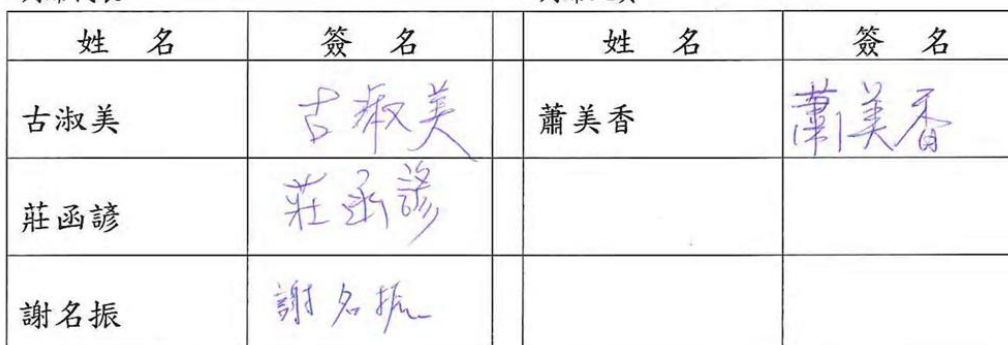 姓 名 簽 名 姓 名 簽 名
古淑美 古淑美 蕭美香 蕭美香
莊函諺 莊函諺
謝名振 謝名振